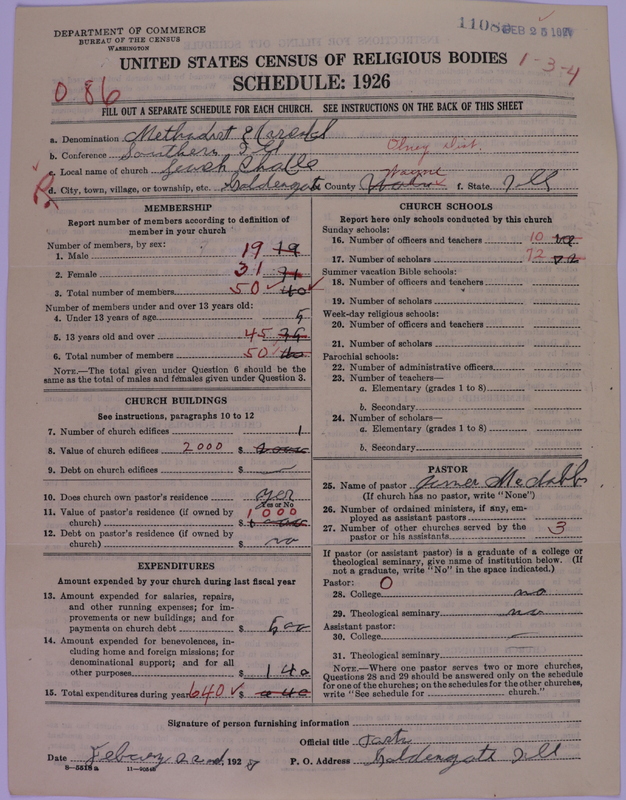 DEPARTMENT OF COMMERCE
BUREAU OF THE CENSUS
WASHINGTON
UNITED STATES CENSUS OF RELIGIOUS BODIES
1-3-4
SCHEDULE: 1926
086
FILL OUT A SEPARATE SCHEDULE FOR EACH CHURCH. SEE INSTRUCTIONS ON THE BACK OF THIS SHEET
a. Denomination Methodist
b. Conference Southern Ill Olney Dist.
c. Local name of church
d. City, town, village, or township, etc. Goldengate e. County Wayne f. State Ill
MEMBERSHIP
Report number of members according to definition of
member in your church
Number of members, by sex:
1. Male 19 19
2. Female 31
3. Total number of members 50 40
Number of members under and over 13 years old:
4. Under 13 years of age 5
5. 13 years old and over 45 35
6. Total number of members 50 40
NOTE.—The total given under Question 6 should be
the same as the total of males and females given under Question 3.
CHURCH BUILDINGS
See instructions, paragraphs 10 to 12
7. Number of church edifices 1
8. Value of church edifices 2000 $
9. Debt on church edifices $
10. Does church own pastor's residence yes
Yes or No
11. Value of pastor's residence (if owned by
church) $ 1000
12. Debt on pastor's residence (if owned by
church) $ no
EXPENDITURES
Amount expended by your church during last fiscal year
13. Amount expended for salaries, repairs,
and other running expenses; for im-
provements or new buildings; and for
payments on church debt $ 500
14. Amount expended for benevolences, in-
cluding home and foreign missions; for
denominational support; and for all
other purposes $ 140
15. Total expenditures during year 640 $
CHURCH SCHOOLS
Report here only schools conducted by this church
Sunday schools:
16. Number of officers and teachers 10
17. Number of scholars 72
Summer vacation Bible schools:
18. Number of officers and teachers
19. Number of scholars
Week-day religious schools:
20. Number of officers and teachers
21. Number of scholars
Parochial schools:
22. Number of administrative officers
23. Number of teachers—
a. Elementary (grades 1 to 8)
b. Secondary
24. Number of scholars—
a. Elementary (grades 1 to 8)
b. Secondary
PASTOR
25. Name of pastor
(If church has no pastor, write "None")
26. Number of ordained ministers, if any, em-
ployed as assistant pastors
27. Number of other churches served by the
pastor or his assistants 3
If pastor (or assistant pastor) is a graduate of a college or
theological seminary, give name of institution below. (If
not a graduate, write "No" in the space indicated.)
Pastor: 0
28. College no
29. Theological seminary no
Assistant pastor:
30. College
31. Theological seminary
NOTE.—Where one pastor serves two or more churches,
Questions 28 and 29 should be answered only on the schedule
for one of the churches; on the schedules for the other churches,
write "See schedule for church."
Signature of person furnishing information
Official title Pastor
Date 22nd, 1928 P. O. Address Goldengate Ill
8—5518a 11—9054